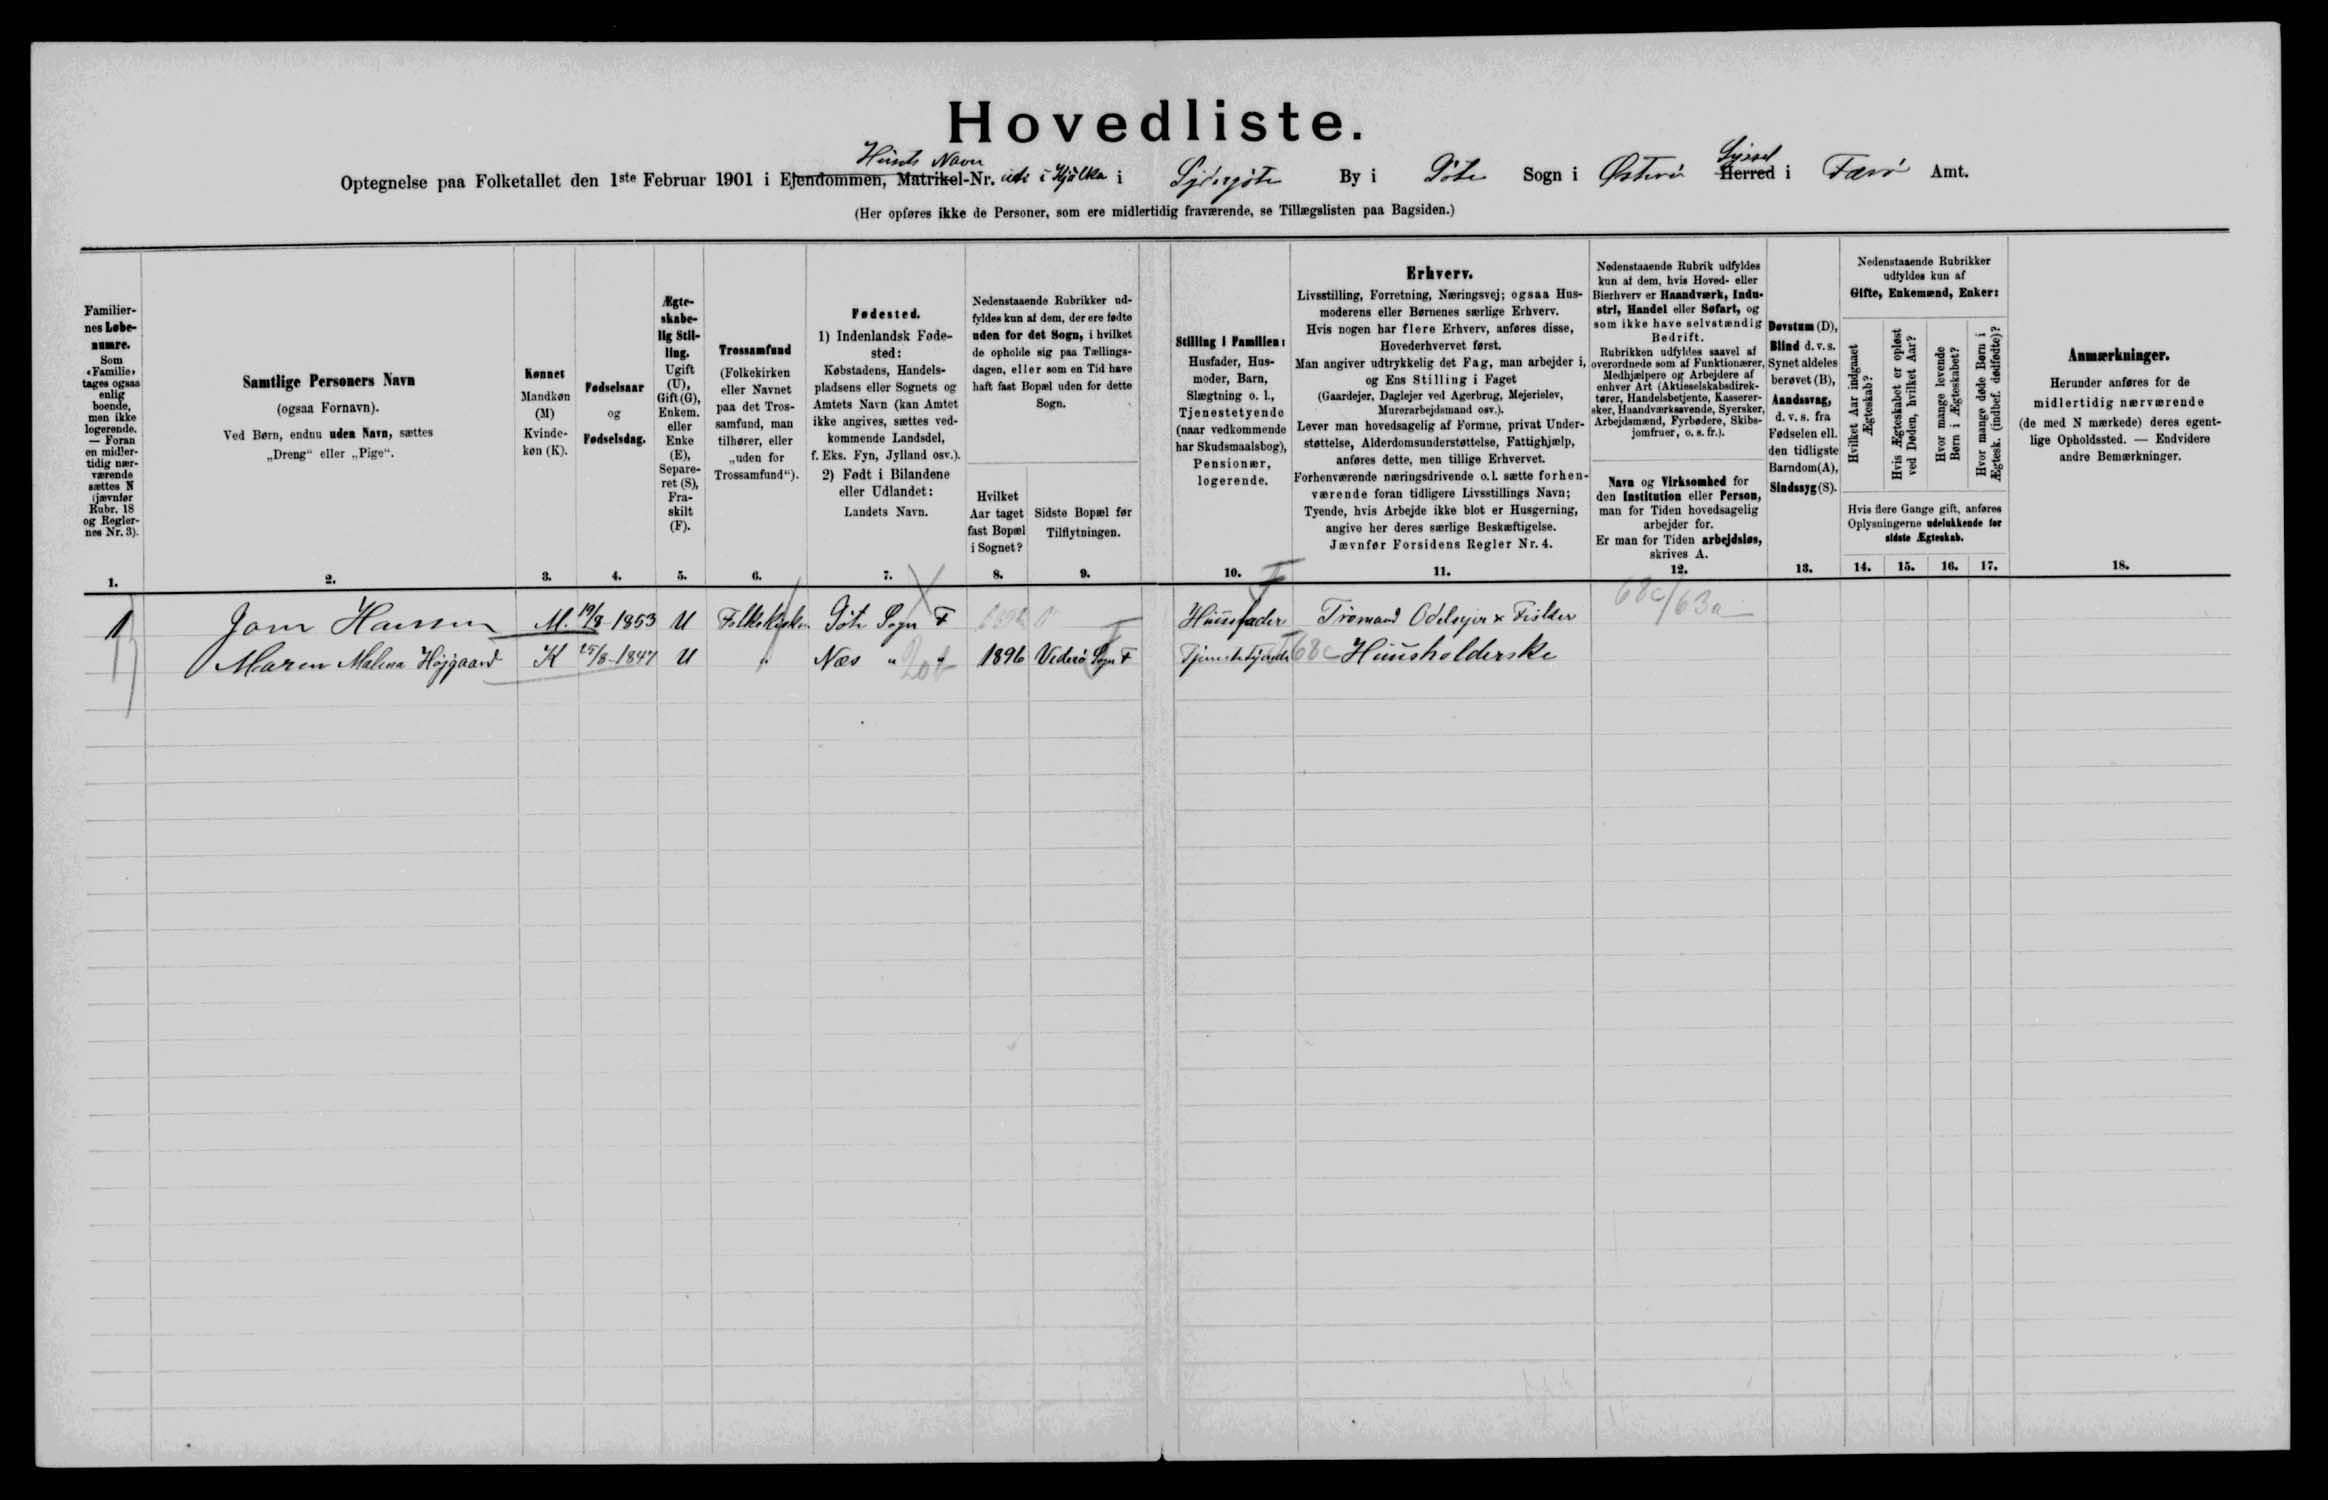 Hovedliste.
Husets Navn
Syssel
Optegnelse paa Folketallet den 1ste Februar 1901 i Ejendommen, Matrikel-Nr. uti i Kjálka i Syðrogöte By i Göte Sogn i Østerö Herred i Færö Amt.
(Her opføres ikke de Personer, som ere midlertidig fraværende, se Tillægslisten paa Bagsiden.)
Familier-
nes Løbe-
numre.
Som
«Familie»
tages ogsaa
enlig
boende,
men ikke
logerende.
— Foran
en midler-
tidig nær-
værende
sættes N
(jævnfør
Rubr. 18
og Regler-
nes Nr. 3).
1.
Samtlige Personers Navn
(ogsaa Fornavn).
Ved Børn, endnu uden Navn, sættes
„Dreng“ eller „Pige“.
2.
Kønnet
Mandkøn
(M)
Kvinde-
køn (K).
3.
Fødselsaar
og
Fødselsdag.
4.
Ægte-
skabe-
lig Stil-
ling.
Ugift
(U),
Gift (G),
Enkem.
eller
Enke
(E),
Separe-
ret (S),
Fra-
skilt
(F).
5.
Trossamfund
(Folkekirken
eller Navnet
paa det Tros-
samfund, man
tilhører, eller
„uden for
Trossamfund“).
6.
Fødested.
1) Indenlandsk Føde-
sted:
Købstadens, Handels-
pladsens eller Sognets og
Amtets Navn (kan Amtet
ikke angives, sættes ved-
kommende Landsdel,
f. Eks. Fyn, Jylland osv.).
2) Født i Bilandene
eller Udlandet:
Landets Navn.
7.
Nedenstaaende Rubrikker ud-
fyldes kun af dem, der ere fødte
uden for det Sogn, i hvilket
de opholde sig paa Tællings-
dagen, eller som en Tid have
haft fast Bopæl uden for dette
Sogn.
Hvilket
Aar taget
fast Bopæl
i Sognet?
8.
Sidste Bopæl før
Tilflytningen.
9.
Stilling i Familien:
Husfader, Hus-
moder, Barn,
Slægtning o. l.,
Tjenestetyende
(naar vedkommende
har Skudsmaalsbog),
Pensionær,
logerende.
10.
Erhverv.
Livsstilling, Forretning, Næringsvej; ogsaa Hus-
moderens eller Børnenes særlige Erhverv.
Hvis nogen har flere Erhverv, anføres disse,
Hovederhvervet først.
Man angiver udtrykkelig det Fag, man arbejder i,
og Ens Stilling i Faget
(Gaardejer, Daglejer ved Agerbrug, Mejerielev,
Murerarbejdsmand osv.).
Lever man hovedsagelig af Formue, privat Under-
støttelse, Alderdomsunderstøttelse, Fattighjælp,
anføres dette, men tillige Erhvervet.
Forhenværende næringsdrivende o. l. sætte forhen-
værende foran tidligere Livsstillings Navn;
Tyende, hvis Arbejde ikke blot er Husgerning,
angive her deres særlige Beskæftigelse.
Jævnfør Forsidens Regler Nr. 4.
11.
Nedenstaaende Rubrik udfyldes
kun af dem, hvis Hoved- eller
Bierhverv er Haandværk, Indu-
stri, Handel eller Søfart, og
som ikke have selvstændig
Bedrift.
Rubrikken udfyldes saavel af
overordnede som af Funktionærer,
Medhjælpere og Arbejdere af
enhver Art (Aktieselskabsdirek-
tører, Handelsbetjente, Kasserer-
sker, Haandværkssvende, Syersker,
Arbejdsmænd, Fyrbødere, Skibs-
jomfruer, o. s. fr.).
Navn og Virksomhed for
den Institution eller Person,
man for Tiden hovedsagelig
arbejder for.
Er man for Tiden arbejdsløs,
skrives A.
12.
Døvstum (D),
Blind d. v. s.
Synet aldeles
berøvet (B),
Aandssvag,
d. v. s. fra
Fødselen ell.
den tidligste
Barndom (A),
Sindssyg (S).
13.
Nedenstaaende Rubrikker
udfyldes kun af
Gifte, Enkemænd, Enker:
Hvilket Aar indgaaet
Ægteskab?
Hvis Ægteskabet er opløst
ved Døden, hvilket Aar?
Hvor mange levende
Børn i Ægteskabet?
Hvor mange døde Børn i
Ægtesk. (indbef. dødfødte)?
Hvis flere Gange gift, anføres
Oplysningerne udelukkende for
sidste Ægteskab.
14. 15. 16. 17.
Anmærkninger.
Herunder anføres for de
midlertidig nærværende
(de med N mærkede) deres egent-
lige Opholdssted. — Endvidere
andre Bemærkninger.
18.
1 Joen Hansen M. 19/8 1853 U Folkekirken Göte Sogn F Huusfader Tromand Odelsejer & Fisker 68c/63a
Maren Malena Højgaard K 25/8-1847 U " Næs " " 20t 1896 Viderö Sogn F Tjenestetyende 68c Huusholderske